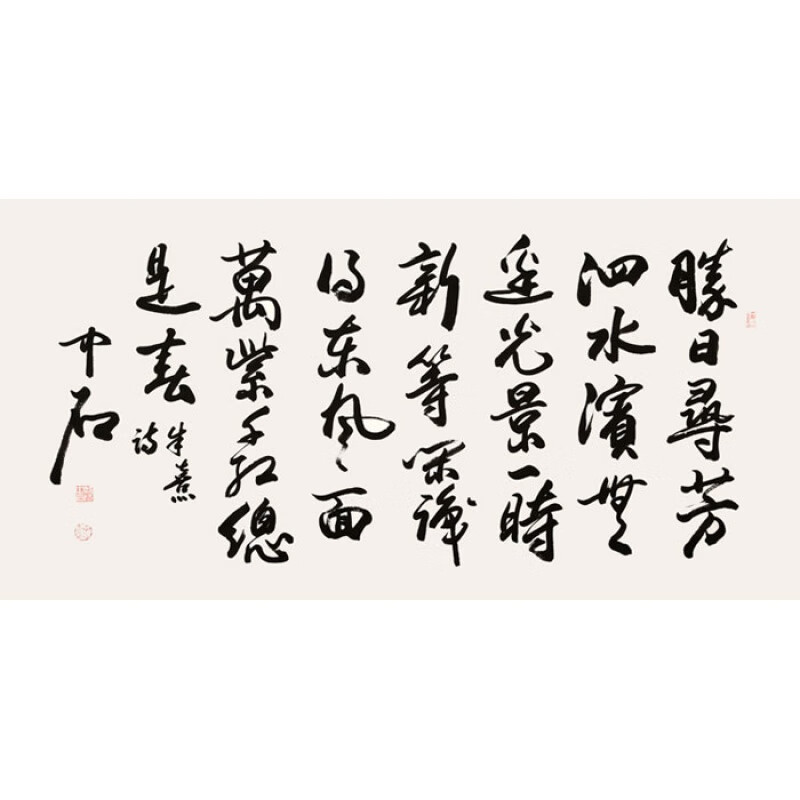 勝日尋芳
泗水濱無
邊光景一時
新等閑識
得東風面
萬紫千紅總
是春
朱熹
詩
中石